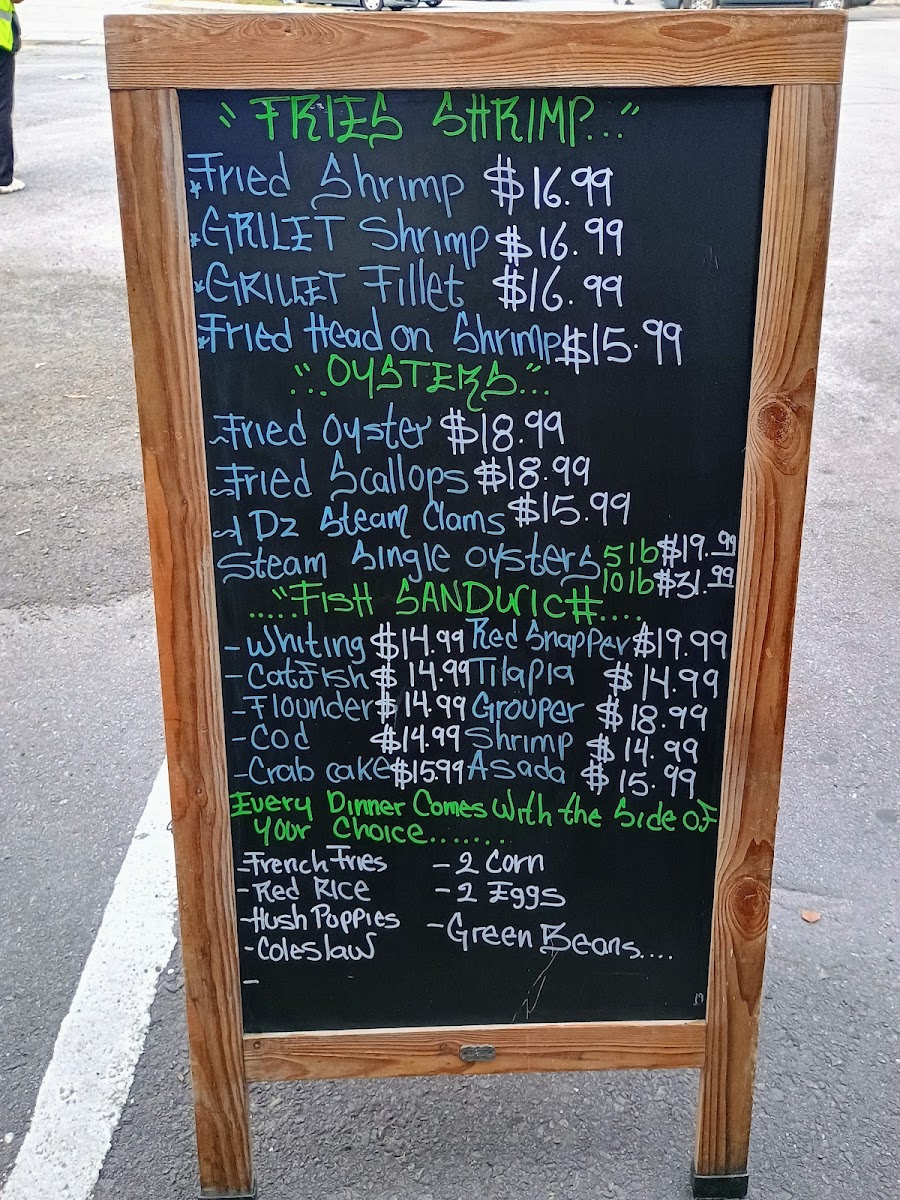 " FRIES SHRIMP..."
*Fried Shrimp $16.99
*GRILLET Shrimp $16.99
*GRILLET Fillet $16.99
*Fried Head on Shrimp $15.99
"..OYSTERS..."
~Fried Oyster $18.99
~Fried Scallops $18.99
~1 Dz Steam Clams $15.99
Steam Single oysters 5lb $19.99
10lb $31.99
....."FISH SANDWICH....
-Whiting $14.99 Red Snapper $19.99
-Catfish $14.99 Tilapia $14.99
-Flounder $14.99 Grouper $18.99
-Cod $14.99 Shrimp $14.99
-Crab cake $15.99 Asada $15.99
Every Dinner Comes with the Side of
your Choice.......
-French Fries - 2 Corn
-Red Rice - 2 Eggs
-Hush Poppies -Green Beans....
-Coleslaw
-